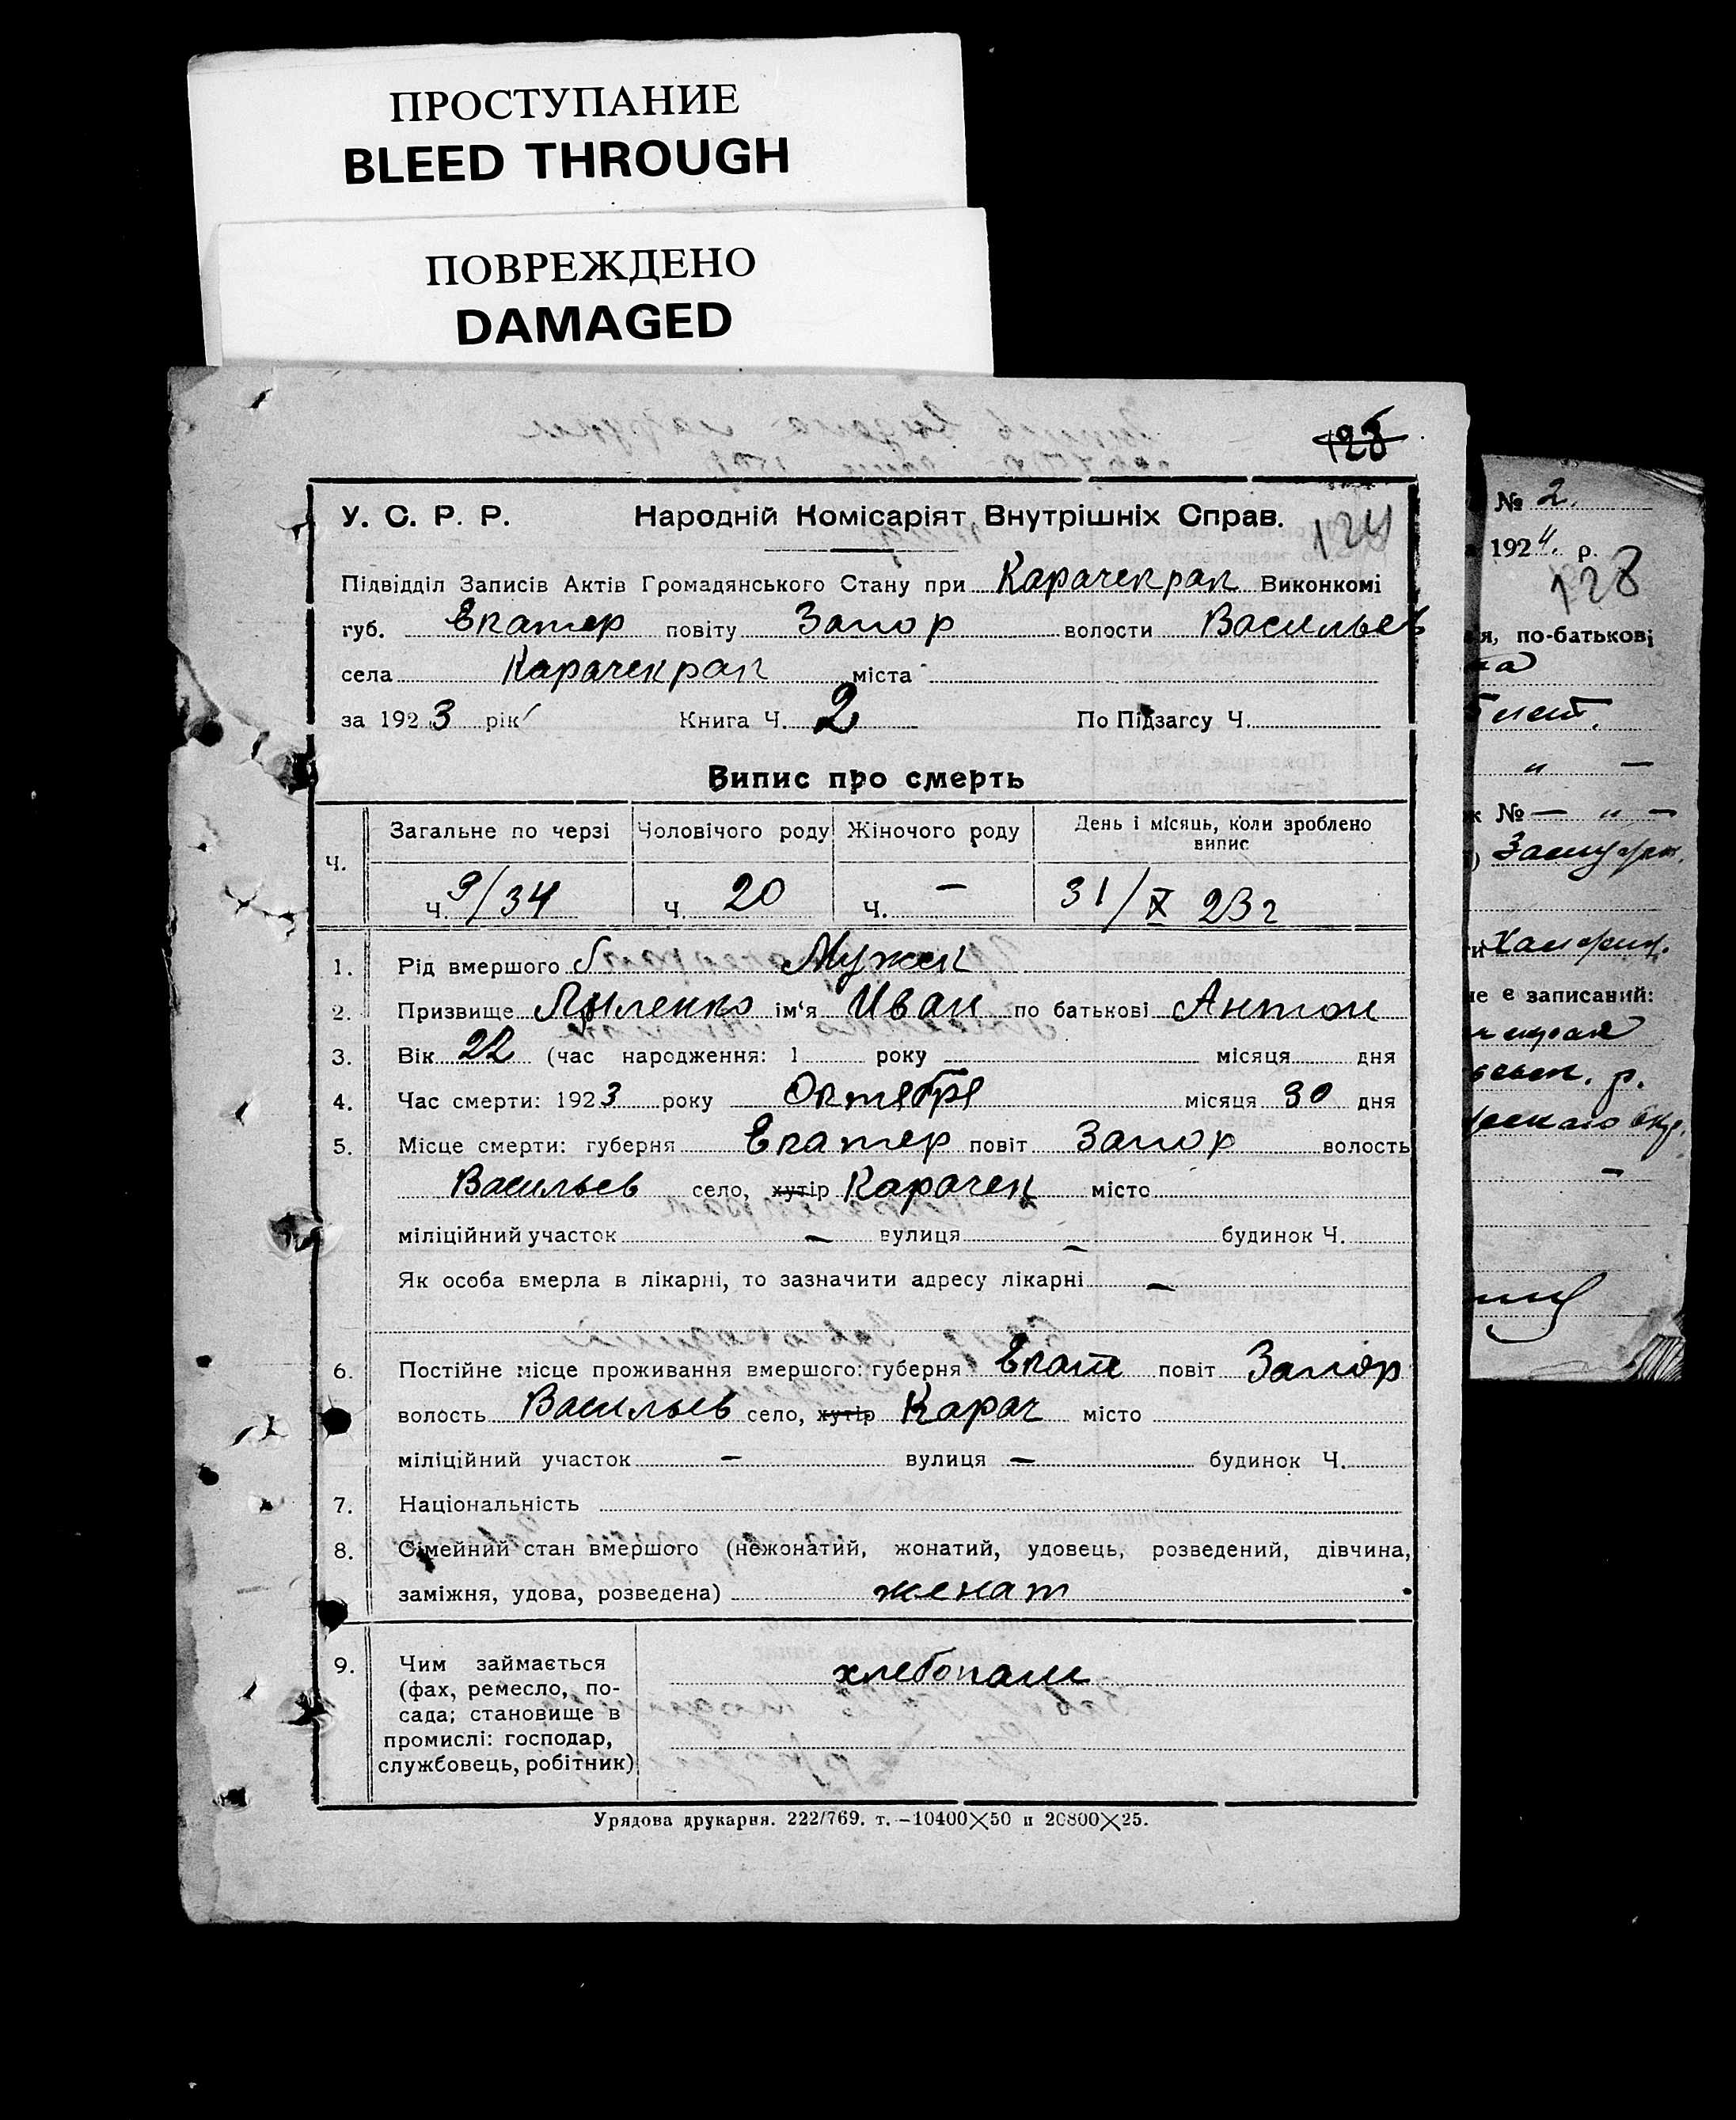 ПРОСТУПАНИЕ
BLEED THROUGH
ПОВРЕЖДЕНО
DAMAGED
У. С. Р. Р. Народній Комісаріят Внутрішніх Справ. 124
Підвідділ Записів Актів Громадянського Стану при Карачекрак Виконкомі
губ. Екатер повіту Запор волости Васильев
села Карачекрак міста
за 1923 рік Книга Ч. 2 По Підзагсу Ч.
Випис про смерть
Ч. Загальне по черзі Чоловічого роду Жіночого роду День і місяць, коли зроблено випис
Ч. 9/34 Ч. 20 Ч. — 31/X 23 г
1. Рід вмершого Мужск
2. Призвище ім‘я Иван по батькові Антон
3. Вік 22 (час народження: 1 року місяця дня
4. Час смерти: 1923 року Октября місяця 30 дня
5. Місце смерти: губерня Екатер повіт Запор волость
Васильев село, хутір Карачек місто
міліційний участок – вулиця – будинок Ч.
Як особа вмерла в лікарні, то зазначити адресу лікарні –
6. Постійне місце проживання вмершого: губерня Екат повіт Запор
волость Васильев село, хутір Карач місто
міліційний участок – вулиця – будинок Ч.
7. Національність
8. Сімейний стан вмершого (нежонатий, жонатий, удовець, розведений, дівчина,
заміжня, удова, розведена) женат
9. Чим займається хлебопаш
(фах, ремесло, по-
сада; становище в
промислі: господар,
службовець, робітник)
Урядова друкарня. 222/769. т.–10400×50 и 20800×25.
№ 2.
1924. р.
128
я, по-батькові
„ —
№ — „ —
е записаний:
р.
—